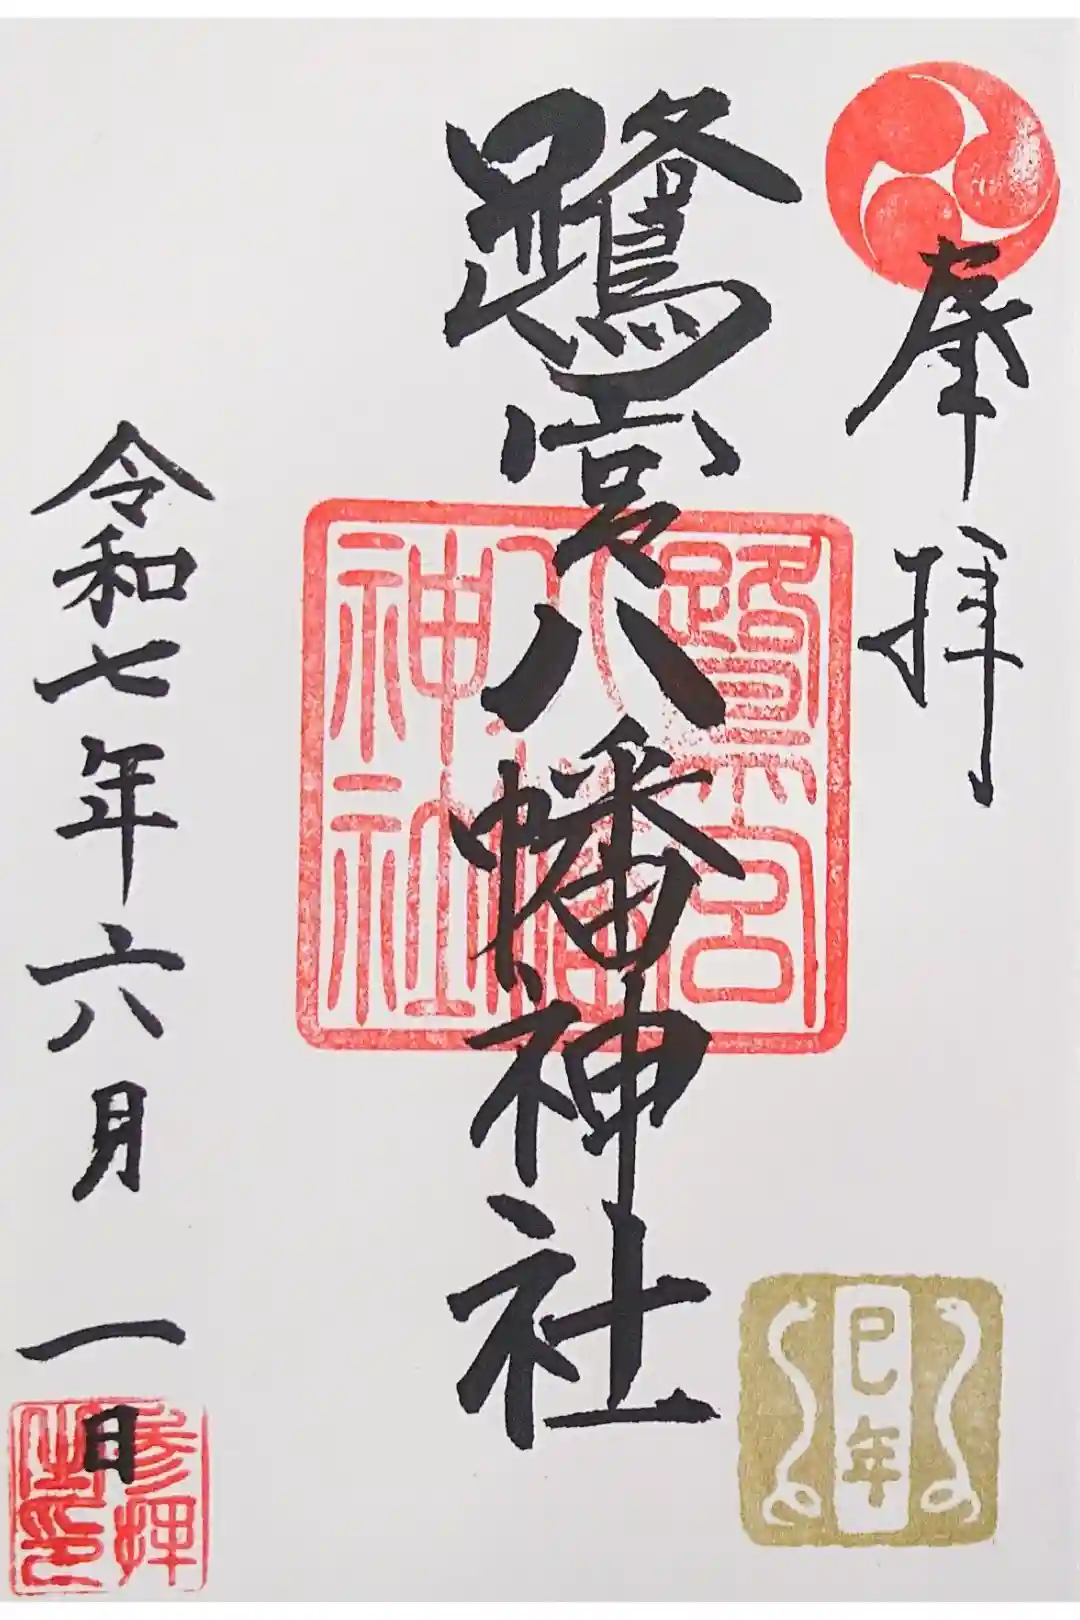 奉拝
鷺宮八幡神社
令和七年六月一日
鷺宮
八幡
神社
巳年
参拝
之印